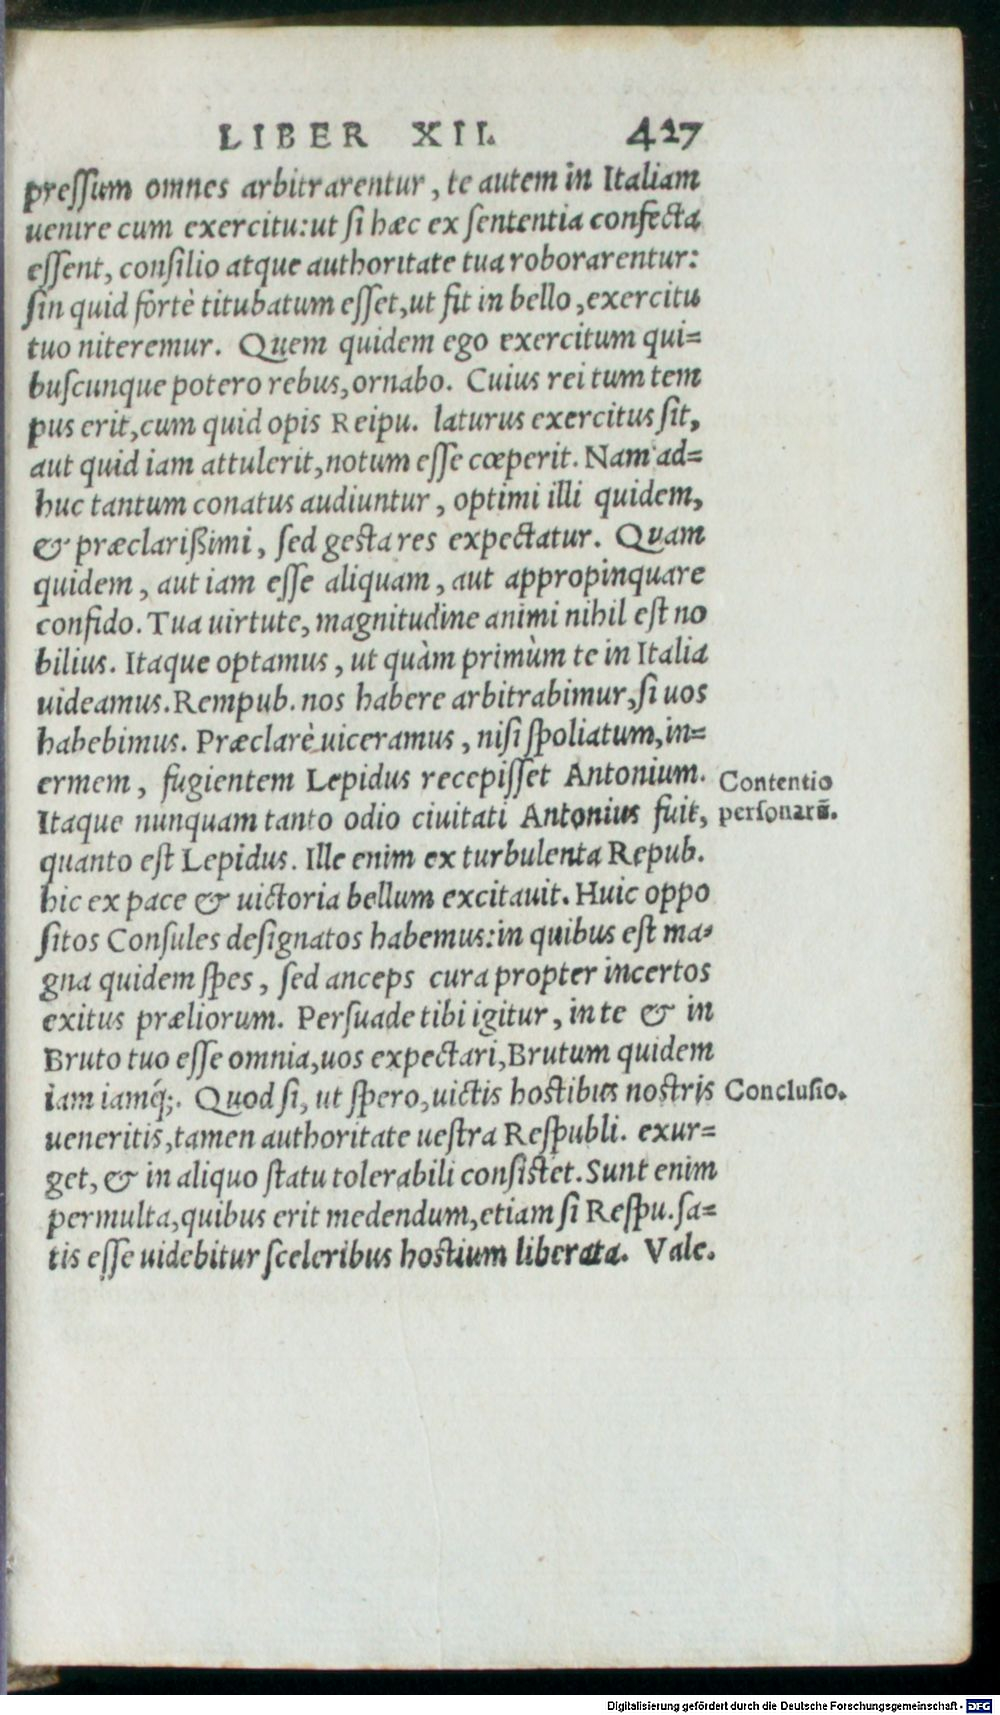 LIBER XII. 427
pressum omnes arbitrarentur, te autem in Italiam
uenire cum exercitu: ut si hæc ex sententia confecta
essent, consilio atque authoritate tua roborarentur:
sin quid fortè titubatum esset, ut fit in bello, exercitu
tuo niteremur. Quem quidem ego exercitum qui=
buscunque potero rebus, ornabo. Cuius rei tum tem
pus erit, cum quid opis Reipu. laturus exercitus sit,
aut quid iam attulerit, notum esse cœperit. Nam ad=
huc tantum conatus audiuntur, optimi illi quidem,
& præclarißimi, sed gesta res expectatur. Quam
quidem, aut iam esse aliquam, aut appropinquare
confido. Tua uirtute, magnitudine animi nihil est no
bilius. Itaque optamus, ut quàm primùm te in Italia
uideamus. Rempub. nos habere arbitrabimur, si uos
habebimus. Præclarè uiceramus, nisi spoliatum, in=
ermem, fugientem Lepidus recepisset Antonium.
Contentio
Itaque nunquam tanto odio ciuitati Antonius fuit,
personarū.
quanto est Lepidus. Ille enim ex turbulenta Repub.
hic ex pace & uictoria bellum excitauit. Huic oppo
sitos Consules designatos habemus: in quibus est ma=
gna quidem spes, sed anceps cura propter incertos
exitus præliorum. Persuade tibi igitur, in te & in
Bruto tuo esse omnia, uos expectari, Brutum quidem
iam iamq́;. Quod si, ut spero, uictis hostibus nostris
Conclusio.
ueneritis, tamen authoritate uestra Respubli. exur=
get, & in aliquo statu tolerabili consistet. Sunt enim
permulta, quibus erit medendum, etiam si Respu. sa=
tis esse uidebitur sceleribus hostium liberata. Vale.
Digitalisierung gefördert durch die Deutsche Forschungsgemeinschaft - DFG